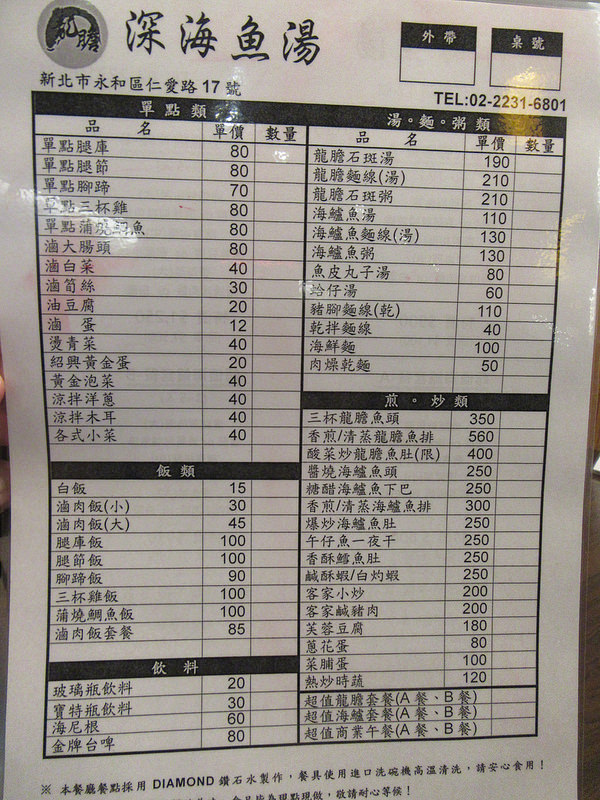 龍膽 深海魚湯
外帶
桌號
新北市永和區仁愛路17號
TEL:02-2231-6801
單點類
品名 單價 數量
單點腿庫 80
單點腿節 80
單點腳蹄 70
單點三杯雞 80
單點蒲燒鯛魚 80
滷大腸頭 80
滷白菜 40
滷筍絲 30
油豆腐 20
滷 蛋 12
燙青菜 40
紹興黃金蛋 20
黃金泡菜 40
涼拌洋蔥 40
涼拌木耳 40
各式小菜 40
飯類
白飯 15
滷肉飯(小) 30
滷肉飯(大) 45
腿庫飯 100
腿節飯 100
腳蹄飯 90
三杯雞飯 100
蒲燒鯛魚飯 100
滷肉飯套餐 85
飲料
玻璃瓶飲料 20
寶特瓶飲料 30
海尼根 60
金牌台啤 80
湯。麵。粥類
品名 單價 數量
龍膽石斑湯 190
龍膽麵線(湯) 210
龍膽石斑粥 210
海鱸魚湯 110
海鱸魚麵線(湯) 130
海鱸魚粥 130
魚皮丸子湯 80
蛤仔湯 60
豬腳麵線(乾) 110
乾拌麵線 40
海鮮麵 100
肉燥乾麵 50
煎。炒類
三杯龍膽魚頭 350
香煎/清蒸龍膽魚排 560
酸菜炒龍膽魚肚(限) 400
醬燒海鱸魚頭 250
糖醋海鱸魚下巴 250
香煎/清蒸海鱸魚排 300
爆炒海鱸魚肚 250
午仔魚一夜干 250
香酥鱈魚肚 250
鹹酥蝦/白灼蝦 250
客家小炒 200
客家鹹豬肉 200
芙蓉豆腐 180
蔥花蛋 80
菜脯蛋 100
熱炒時蔬 120
超值龍膽套餐(A餐、B餐)
超值海鱸套餐(A餐、B餐)
超值商業午餐(A餐、B餐)
※ 本餐廳餐點採用 DIAMOND 鑽石水製作,餐具使用進口洗碗機高溫清洗,請安心食用!
食品皆為現點現做,敬請耐心等候!